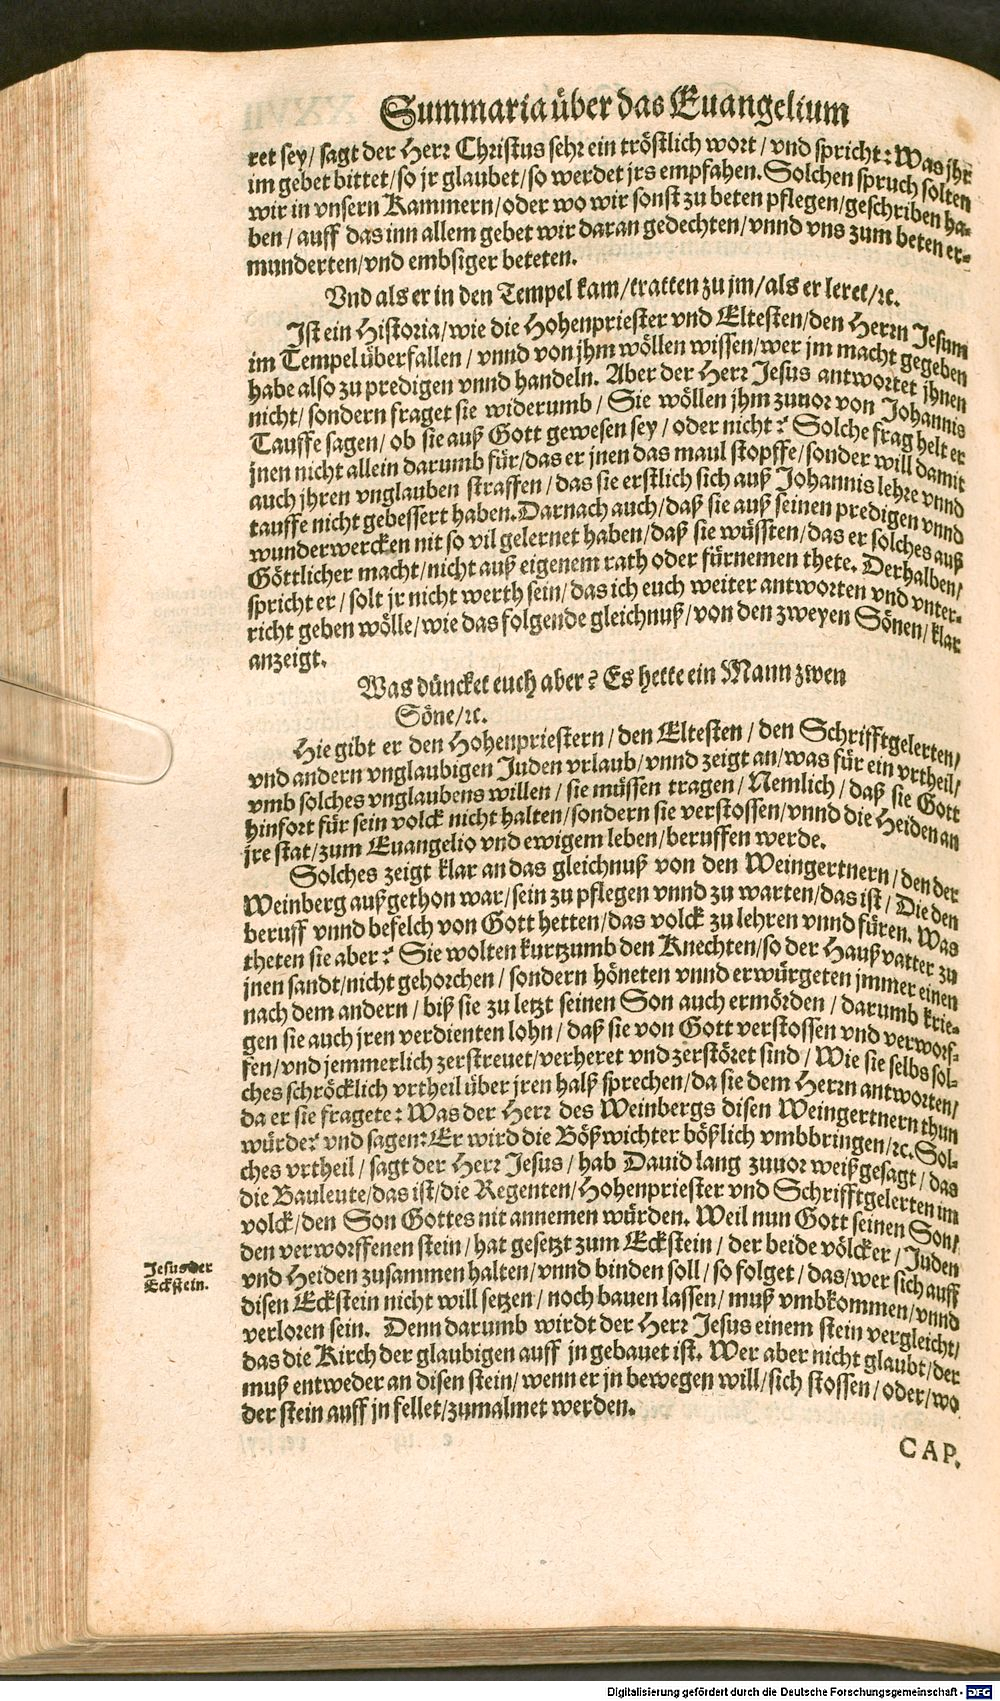 Summaria über das Euangelium
ret sey/ sagt der Herr Christus sehr ein tröstlich wort / vnd spricht: Was jhr
im gebet bittet/so jr glaubet/so werdet jrs empfahen. Solchen spruch solten
wir in vnsern Kammern/oder wo wir sonst zu beten pflegen/geschriben ha-
ben / auff das inn allem gebet wir daran gedechten/vnnd vns zum beten er-
munderten/vnd embsiger beteten.
Vnd als er in den Tempel kam/tratten zu jm/als er leret/ꝛc.
Ist ein Historia/wie die Hohenpriester vnd Eltesten/den Herrn Jesum
im Tempel überfallen / vnnd von jhm wöllen wissen/wer jm macht gegeben
habe also zu predigen vnnd handeln. Aber der Herr Jesus antwortet jhnen
nicht/ sondern fraget sie widerumb / Sie wöllen jhm zuuor von Johannis
Tauffe sagen/ ob sie auß Gott gewesen sey / oder nicht? Solche frag helt er
jnen nicht allein darumb für/das er jnen das maul stopffe/sonder will damit
auch jhren vnglauben straffen / das sie erstlich sich auß Johannis lehre vnnd
tauffe nicht gebessert haben. Darnach auch/daß sie auß seinen predigen vnnd
wunderwercken nit so vil gelernet haben/daß sie wüssten/das er solches auß
Göttlicher macht/nicht auß eigenem rath oder fürnemen thete. Derhalben/
spricht er / solt jr nicht werth sein/das ich euch weiter antworten vnd vnter-
richt geben wölle/wie das folgende gleichnuß/von den zweyen Sönen/ klar
anzeigt.
Was düncket euch aber? Es hette ein Mann zwen
Söne/ꝛc.
Hie gibt er den Hohenpriestern / den Eltesten / den Schrifftgelerten/
vnd andern vnglaubigen Juden vrlaub/vnnd zeigt an/was für ein vrtheil/
vmb solches vnglaubens willen / sie müssen tragen/ Nemlich / daß sie Gott
hinfort für sein volck nicht halten/sondern sie verstossen/vnnd die Heiden an
jre stat/zum Euangelio vnd ewigem leben/beruffen werde.
Solches zeigt klar an das gleichnuß von den Weingertnern / den der
Weinberg außgethon war/sein zu pflegen vnnd zu warten/das ist / Die den
beruff vnnd befelch von Gott hetten/das volck zu lehren vnnd füren. Was
theten sie aber? Sie wolten kurtzumb den Knechten/so der Haußvatter zu
jnen sandt/nicht gehorchen / sondern höneten vnnd erwürgeten jmmer einen
nach dem andern / biß sie zu letzt seinen Son auch ermörden / darumb krie-
gen sie auch jren verdienten lohn / daß sie von Gott verstossen vnd verworf-
fen/vnd jemmerlich zerstreuet/verheret vnd zerstöret sind / Wie sie selbs sol-
ches schröcklich vrtheil über jren halß sprechen/da sie dem Herrn antworten/
da er sie fragete: Was der Herr des Weinbergs disen Weingertnern thun
würde? vnd sagen: Er wird die Bößwichter bößlich vmbbringen/ꝛc. Sol-
ches vrtheil / sagt der Herr Jesus / hab Dauid lang zuuor weißgesagt / das
die Bauleute/das ist/die Regenten/Hohenpriester vnd Schrifftgelerten im
volck/den Son Gottes nit annemen würden. Weil nun Gott seinen Son/
den verworffenen stein / hat gesetzt zum Eckstein / der beide völcker / Juden
vnd Heiden zusammen halten/vnnd binden soll / so folget / das/wer sich auff
disen Eckstein nicht will setzen / noch bauen lassen / muß vmbkommen/vnnd
verloren sein. Denn darumb wirdt der Herr Jesus einem stein vergleicht/
das die Kirch der glaubigen auff jn gebauet ist. Wer aber nicht glaubt/der
muß entweder an disen stein/wenn er jn bewegen will/sich stossen / oder/wo
der stein auff jn fellet/zumalmet werden.
Jesus der
Eckstein.
CAP.
Digitalisierung gefördert durch die Deutsche Forschungsgemeinschaft - DFG